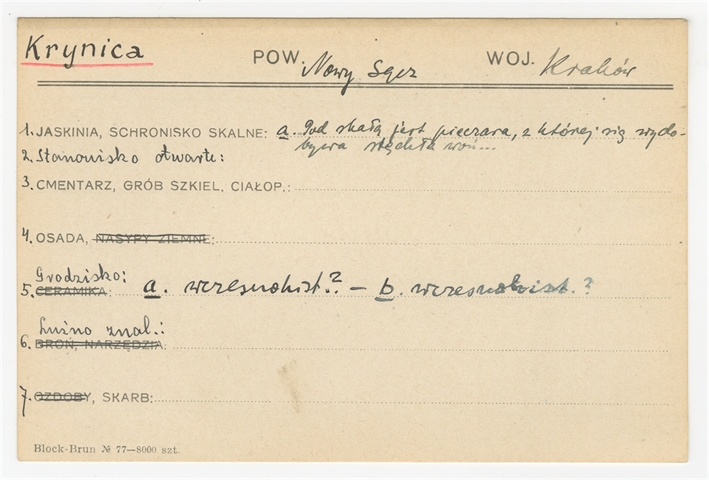 Krynica POW. Nowy Sącz WOJ. Kraków
1. JASKINIA, SCHRONISKO SKALNE: a. Pod skałą jest pieczara, z której się wydo-
2. Stanowisko otwarte: bywa stęchła woń...
3. CMENTARZ, GRÓB SZKIEL. CIAŁOP.:
4. OSADA, NASYPY ZIEMNE:
Grodzisko:
5. CERAMIKA: a. wczesnohist.? – b. wczesnohist.?
Luźno znal.:
6. BROŃ, NARZĘDZIA:
7. OZDOBY, SKARB:
Block-Brun № 77—8000 szt.